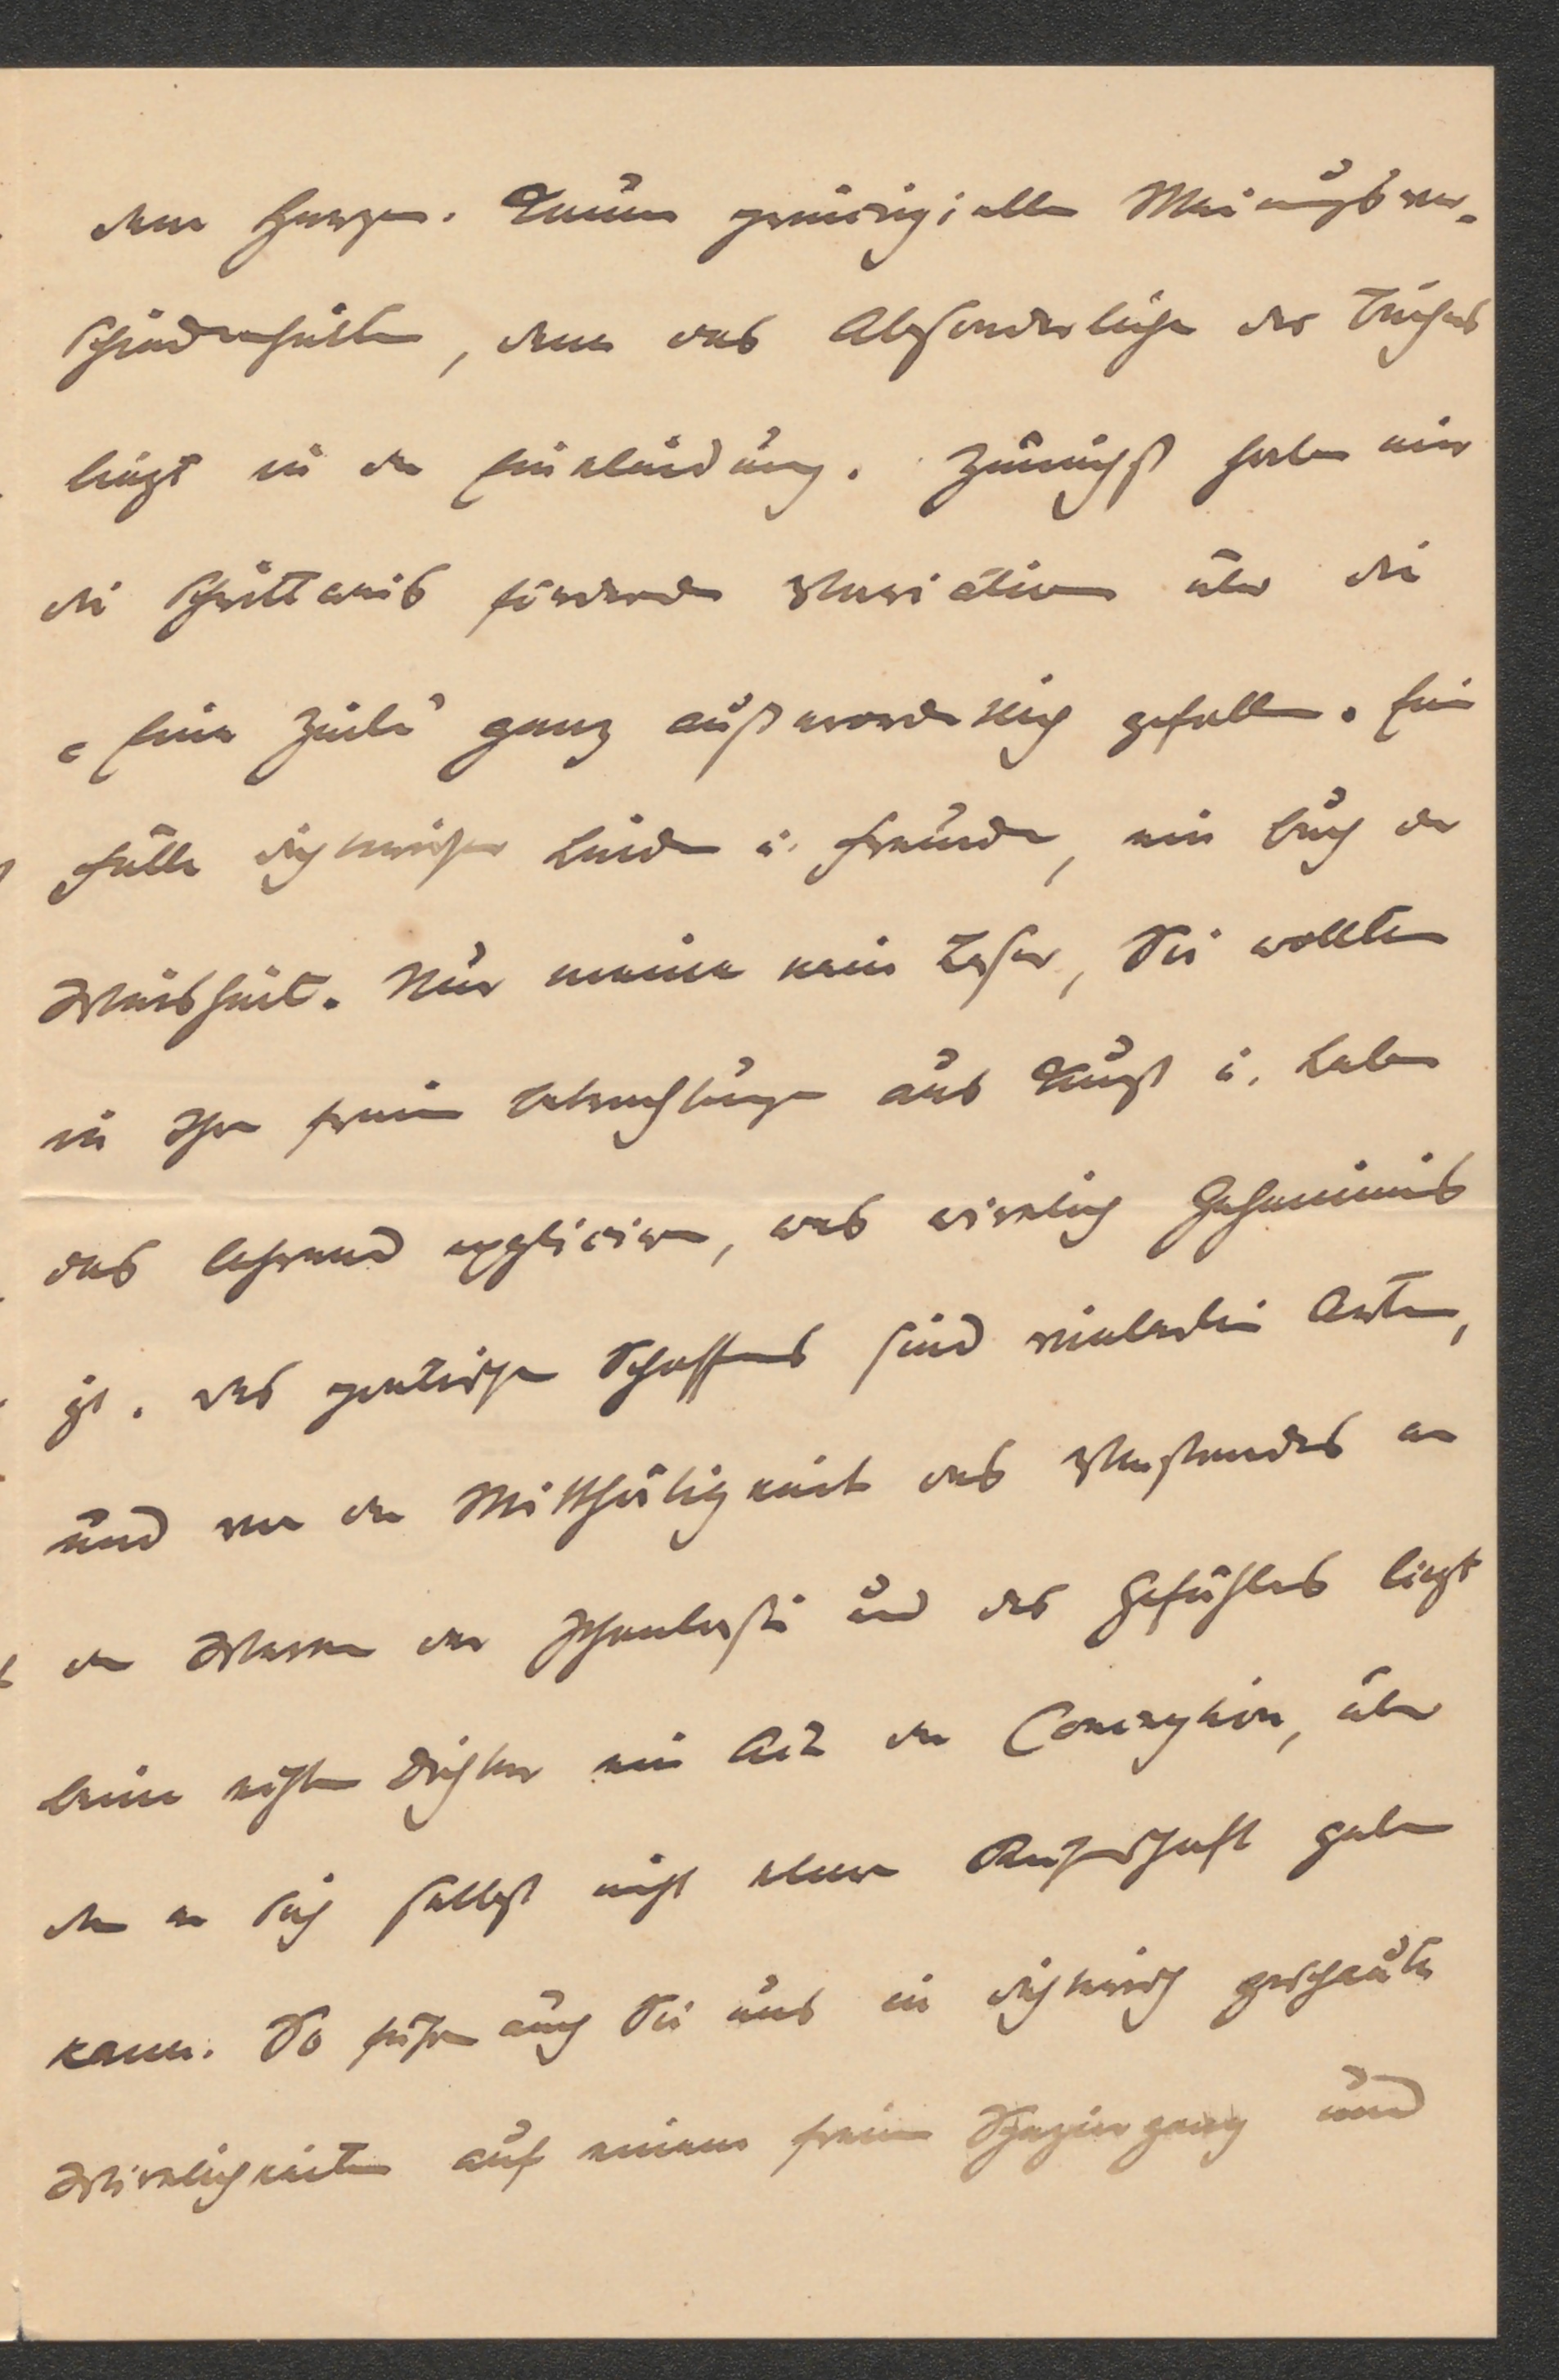 dem Herzen. Kaum prinzipielle Meinungsver-
schiedenheiten, denn das Absonderliche des Buches
liegt in der Einkleidung. Zunächst haben mir
die schrittweis fördernden Variationen über die
„Eine Zeile“ ganz außerordentlich gefallen. Eine
Fülle dichterischer Leiden u. Freuden, ein Buch der
Weisheit. Nur meine kein Leser, Sie wollten
in Ihren freien Betrachtungen aus Kunst u. Leben
das lehrend expliciren, was wirklich Geheimnis
ist. Des poetischen Schaffens sind vielerlei Arten,
und vor der Mitthätigkeit des Verstandes an
den Werken der Phantasie und des Gefühles liegt
beim echten Dichter ein Act der Conception, über
den er sich selbst nicht klare Rechenschaft geben
kann. So führen auch Sie uns in dichterisch geschaute
Wirklichkeiten auf einem freien Spaziergang und